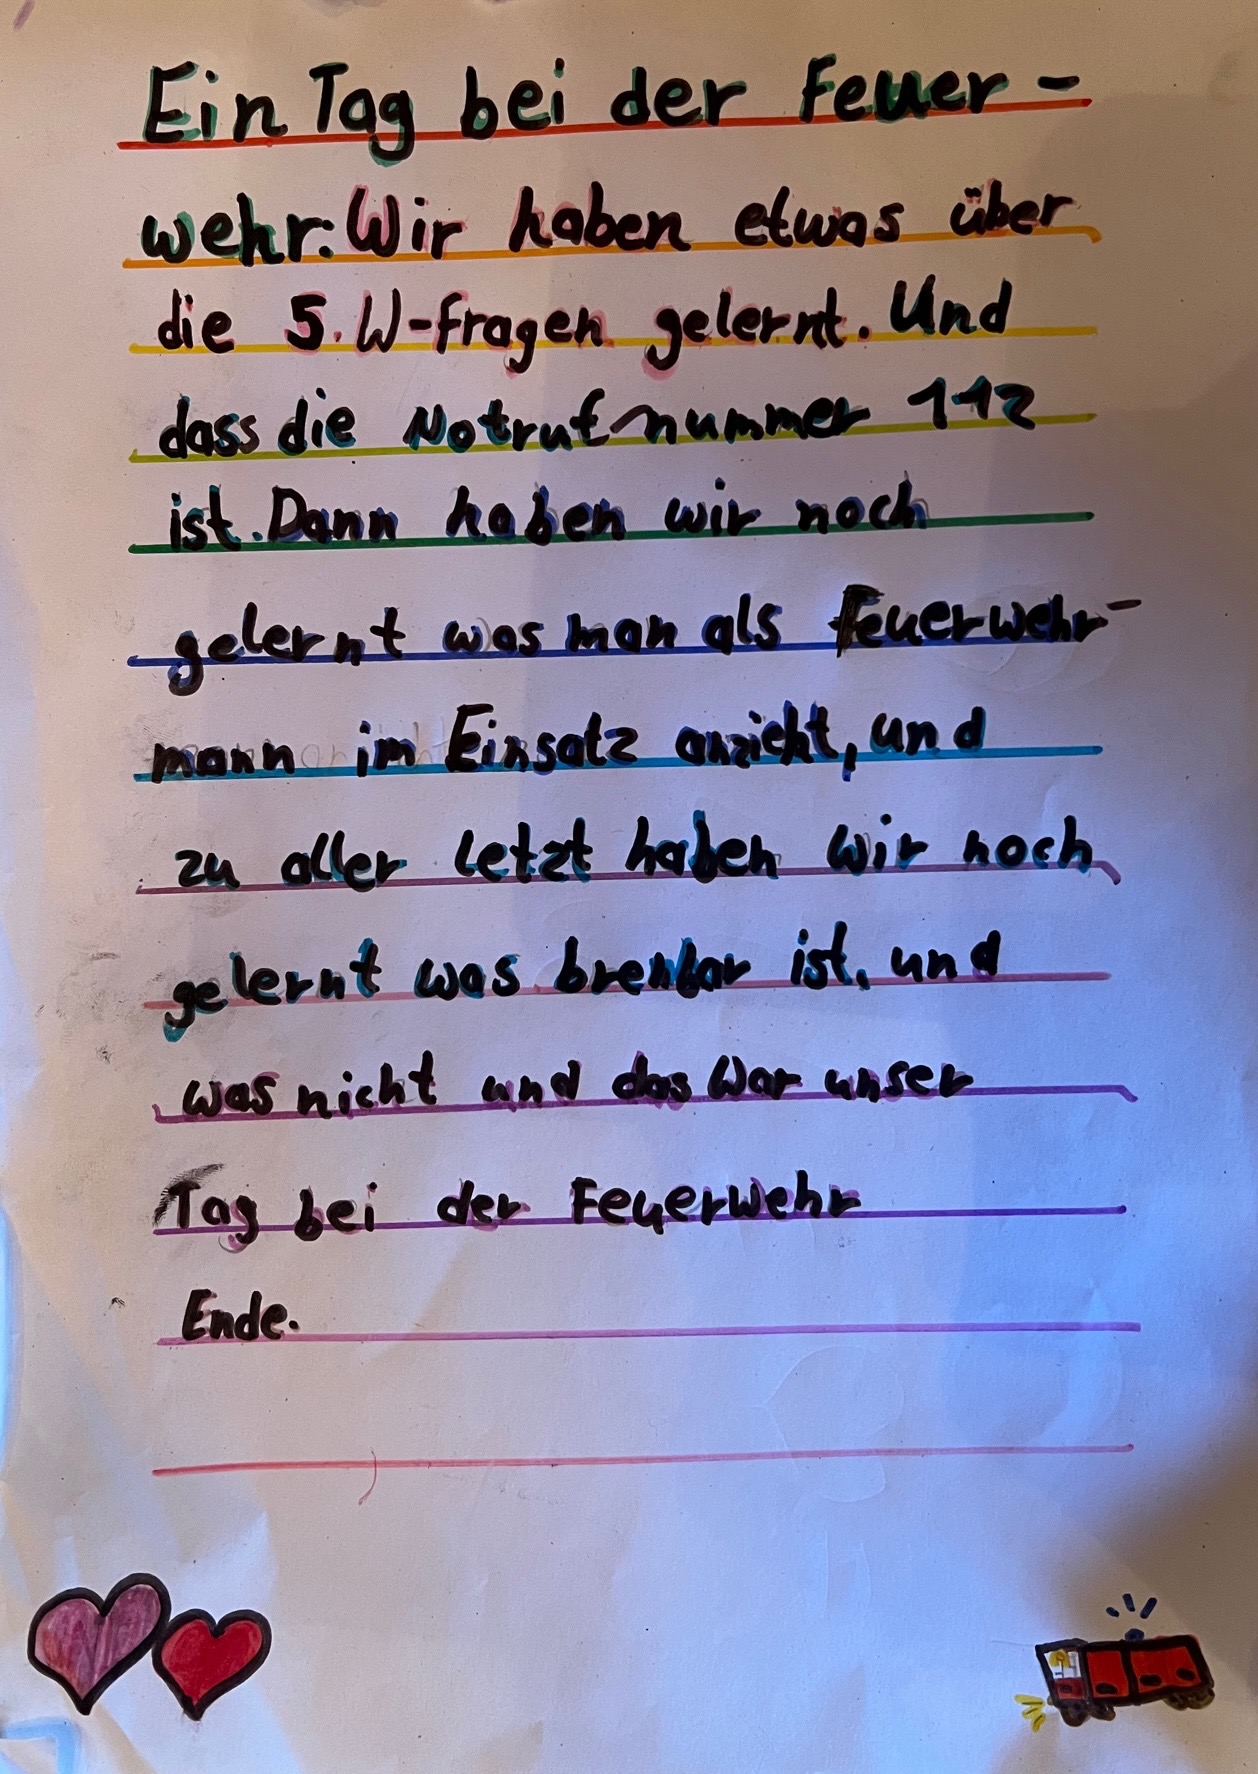 Ein Tag bei der Feuer-
wehr: Wir haben etwas über
die 5. W-Fragen gelernt. Und
dass die Notrufnummer 112
ist. Dann haben wir noch
gelernt was man als Feuerwehr-
mann im Einsatz anzieht, und
zu aller letzt haben wir noch
gelernt was brenbar ist, und
was nicht und das war unser
Tag bei der Feuerwehr
Ende.